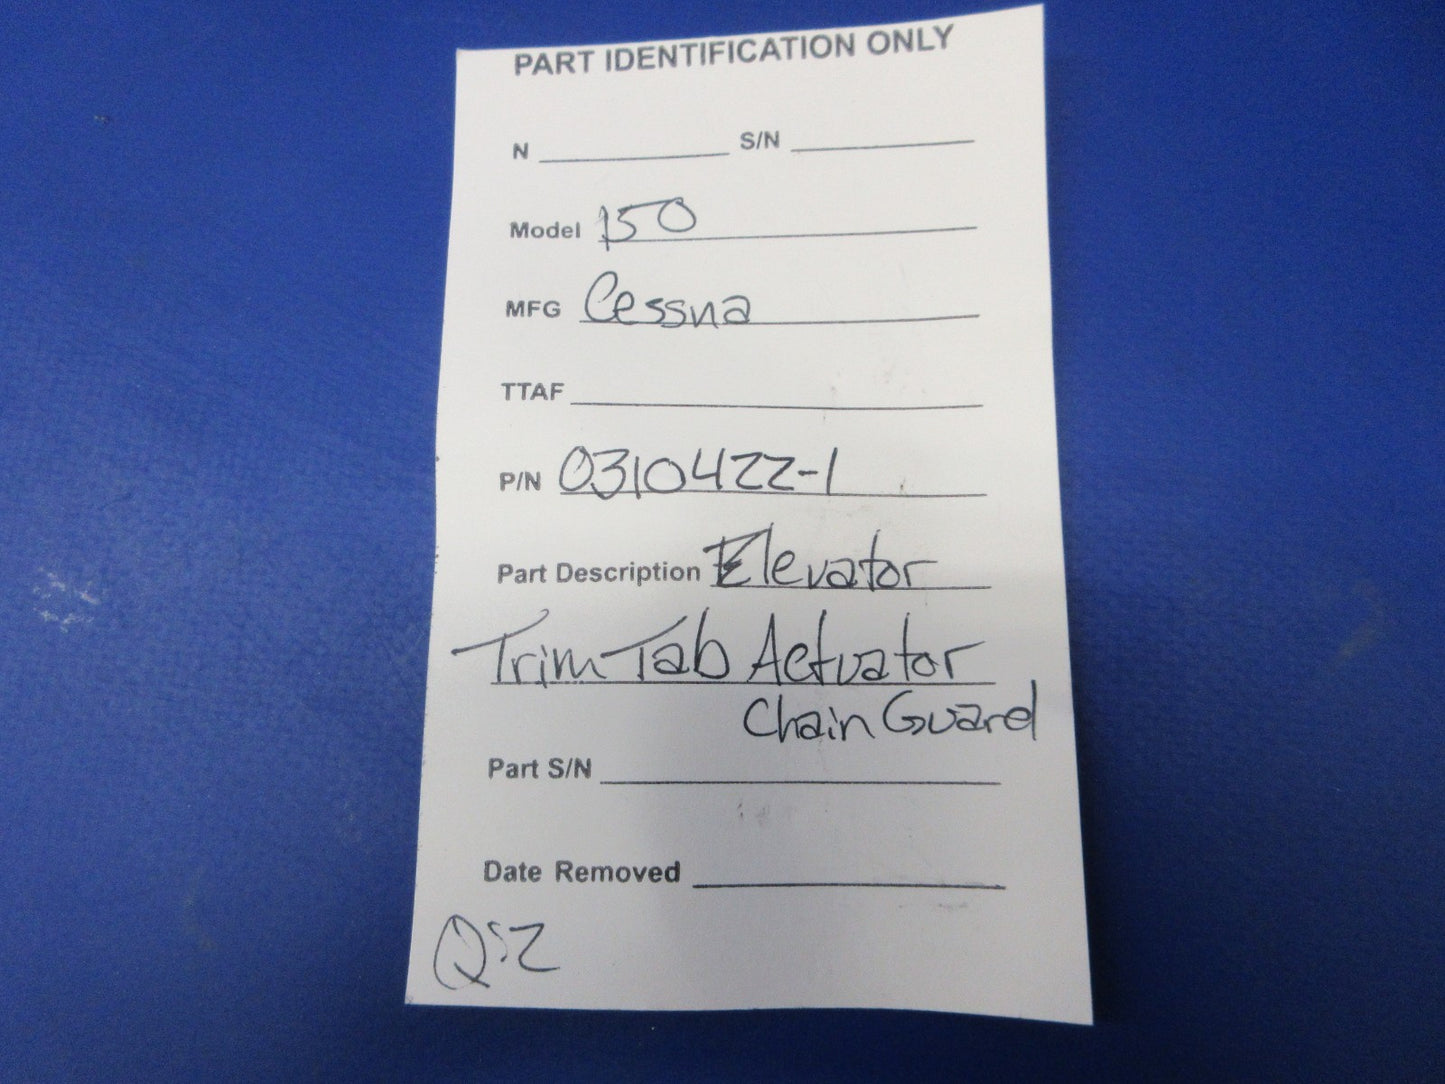 PART IDENTIFICATION ONLY
N ____________ S/N ____________
Model 150
MFG Cessna
TTAF ____________
P/N 0310422-1
Part Description Elevator
Trim Tab Actuator
Chain Guard
Part S/N ____________
Date Removed ____________
Q:2